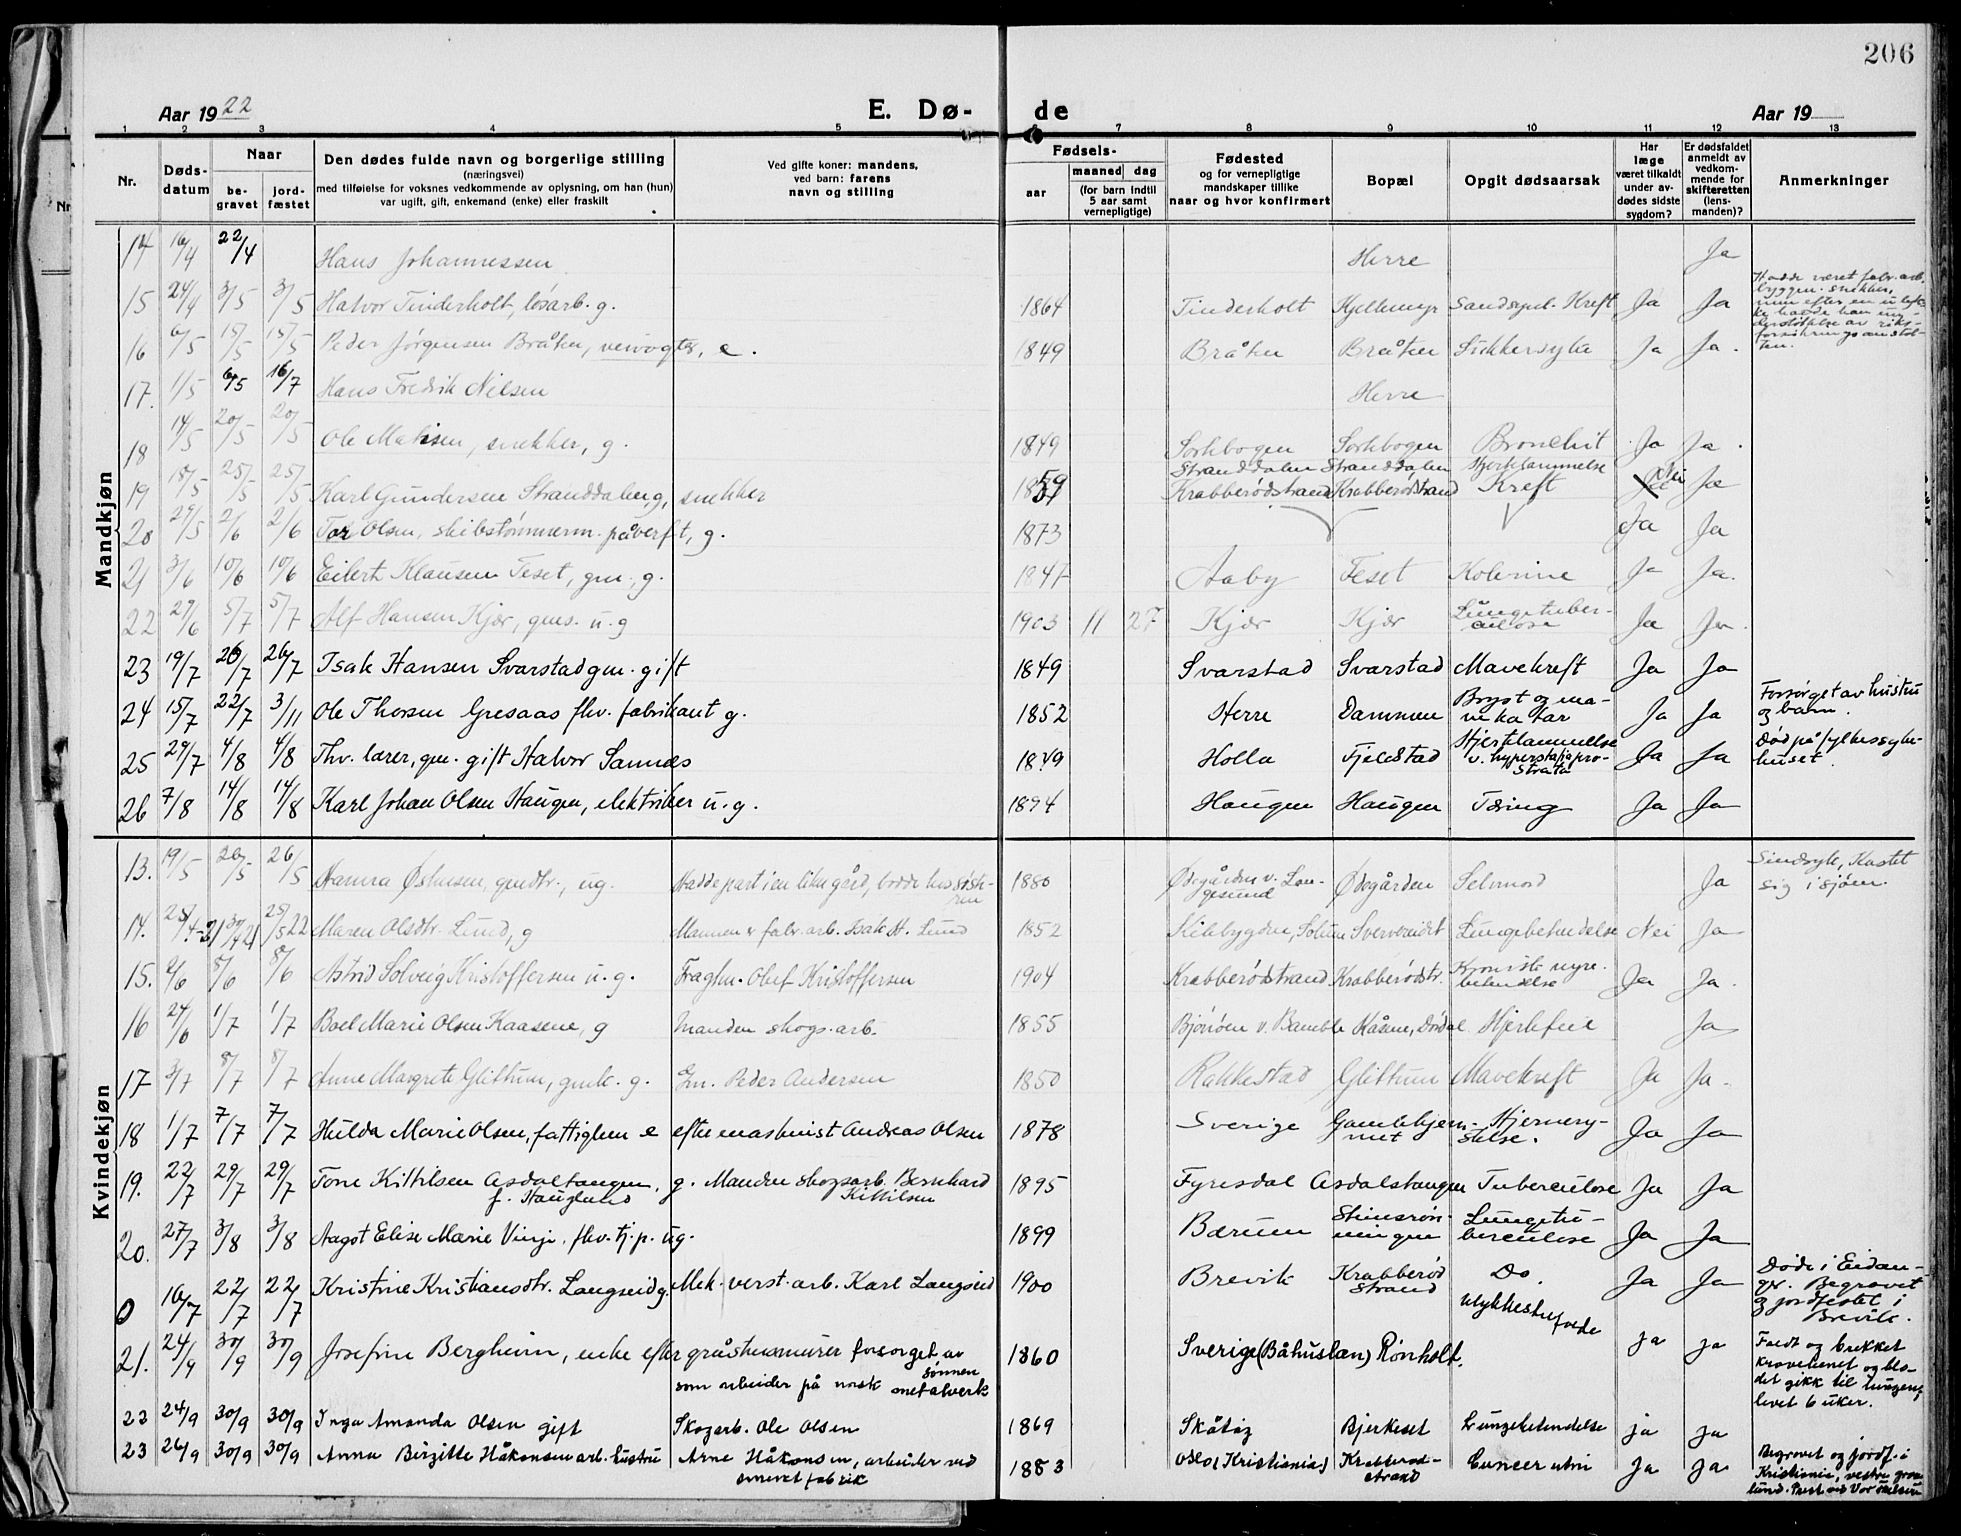 206
Aar 1922 E. Dø- de Aar 19
1 2 3 4 5 7 8 9 10 11 12 13
Nr. Døds-datum Naar be-gravet jord-fæstet
Den dødes fulde navn og borgerlige stilling
(næringsvei)
med tilføielse for voksnes vedkommende av oplysning, om han (hun)
var ugift, gift, enkemand (enke) eller fraskilt
Ved gifte koner: mandens,
ved barn: farens
navn og stilling
Fødsels-
aar maaned dag
(for barn indtil
5 aar samt
vernepligtige)
Fødested
og for vernepligtige
mandskaper tillike
naar og hvor konfirmert
Bopæl
Opgit dødsaarsak
Har
læge
været tilkaldt
under av-
dødes sidste
sygdom?
Er dødsfaldet
anmeldt av
vedkom-
mende for
skifteretten
(lens-
manden)?
Anmerkninger
Nr
Mandkjøn
14 16/4 22/4 Hans Johannessen Herre Ja
15 24/4 3/5 3/5 Halvor Tinderholt, løsarb. g. 1864 Tinderholt Kjellemyr Kreft Ja Ja
16 6/5 15/5 15/5 Peder Jørgensen Bråten, veivogter, e. 1849 Bråten Bråten Sukkersyke Ja Ja.
17. 1/5 6/5 16/7 Hans Fredrik Nilsen Herre
18 14/5 20/5 20/5 Ole Matisen, snekker, g. 1849 Sortebogen Sortebogen Bronchit Ja Ja.
19 18/5 25/5 25/5 Karl Gundersen Stranddalen, g, snekker 1859 Stranddalen Stranddalen Hjertelammelse Nei Ja
Krabberødstrand Krabberødstrand Kreft
20 29/5 2/6 2/6 Tor Olsen, skibstømmerm. på verft, g. 1873 Ja Ja
21 3/6 10/6 10/6 Eilert Klausen Feset, gm., g. 1847 Aaby Feset Kolerine Ja Ja.
22 29/6 5/7 5/7 Alf Hansen Kjær, gms. u. g 1903 11 27 Kjær Kjær Lungetuber-
culose Ja Ja.
23 19/7 26/7 26/7 Isak Hansen Svarstad gm. gift 1849 Svarstad Svarstad Mavekreft Ja Ja
24 15/7 22/7 3/11 Ole Thorsen Gresaas fhv. fabrikant g. 1852 Herre Dammen Bryst og ma-
vekatar Ja Ja Forsørget av hustru
og barn.
25 29/7 4/8 4/8 Fhv. lærer, gm. gift Halvor Sannes 1849 Holla Fjelstad Hjertelammelse
v. hyperstafia pro-
strata Ja Ja Død på fylkessyke-
huset.
26 7/8 14/8 14/8 Karl Johan Olsen Haugen, elektriker u. g. 1894 Haugen Haugen Tæring Ja Ja
Kvindekjøn
13. 19/5 26/5 26/5 Hanna Østensen, gmdtr., ug. Hadde part i en liten gård, bodde hos søste-
ren 1880 Ødegården v. Lan-
gesund Ødegården Selvmord Ja Sindsyk, Kastet
sig i sjøen.
14. 25/4-21 30/4 21 25/5 22 Maren Olsdtr. Lund, g Mannen v fabr. arb. Isak H. Lund 1852 Kilebygden, Solum Lungebetendelse Nei Ja
15. 2/6 8/6 8/6 Astrid Solveig Kristoffersen u. g. Fragtm. Olef Kristoffersen 1904 Krabberødstrand Krabberødstr. Kronisk nyre-
betendelse Ja Ja.
16 24/6 1/7 1/7 Boel Marie Olsen Kaasene, g Manden skogs. arb. 1855 Bjønøen v. Bamble Kåsene, Dørdal Hjertefeil Ja
17 3/7 8/7 8/7 Anne Margrete Glittum, gmk. g. Gm. Peder Andersen 1850 Rakkestad Glittum Mavekreft Ja Ja.
18 1/7 7/7 7/7 Hulda Marie Olsen, fattiglem e efter maskinist Andreas Olsen 1878 Sverige Gamlehjem-
met Hjernery-
stelse. Ja Ja
19. 22/7 29/7 29/7 Tone Kittilsen Asdaltangen, g. Manden skogsarb. Bernhard 1895 Fyresdal Asdalstangen Tuberculose Ja Ja
f. Hauglund Kittilsen
20. 27/7 3/8 3/8 Aagot Elise Marie Vinje. fhv. tj. p. ug. 1899 Bærum Stensrøn-
ningen Lungetu-
berculose Ja Ja
0 16/7 22/7 22/7 Kristine Kristiansdtr. Langseid g. Mek. verst. arb. Karl Langseid 1900 Brevik Krabberød
Strand Do. Ja Ja Døde i Eidan-
ger. Begravet
og jordfestet i
Brevik.
21. 24/9 30/9 30/9 Josefine Bergheim, enke efter gråstensmurer forsørget av
sønnen
som arbeider på norsk metalverk 1860 Sverige (Båhuslen) Rønholt. Ulykkestilfælde ja ja Faldt og brekket
kravebenet og blo-
det gikk til lungen,
levet 6 uker.
22 24/9 30/9 30/9 Inga Amanda Olsen gift Skogarb. Ole Olsen 1869 Skåtøy Bjerkeset Lungebetendelse ja ja
23 26/9 30/9 30/9 Anna Birgitte Håkonsen arb. hustru Arne Håkonsen, arbeider ved
smevet fabrik 1883 Oslo (Kristiania) Krabberød-
strand Cancer uteri Ja Ja Begravet og jordf. i
Kristiania, vestre grav-
lund. Prest ved Vor Frelsers